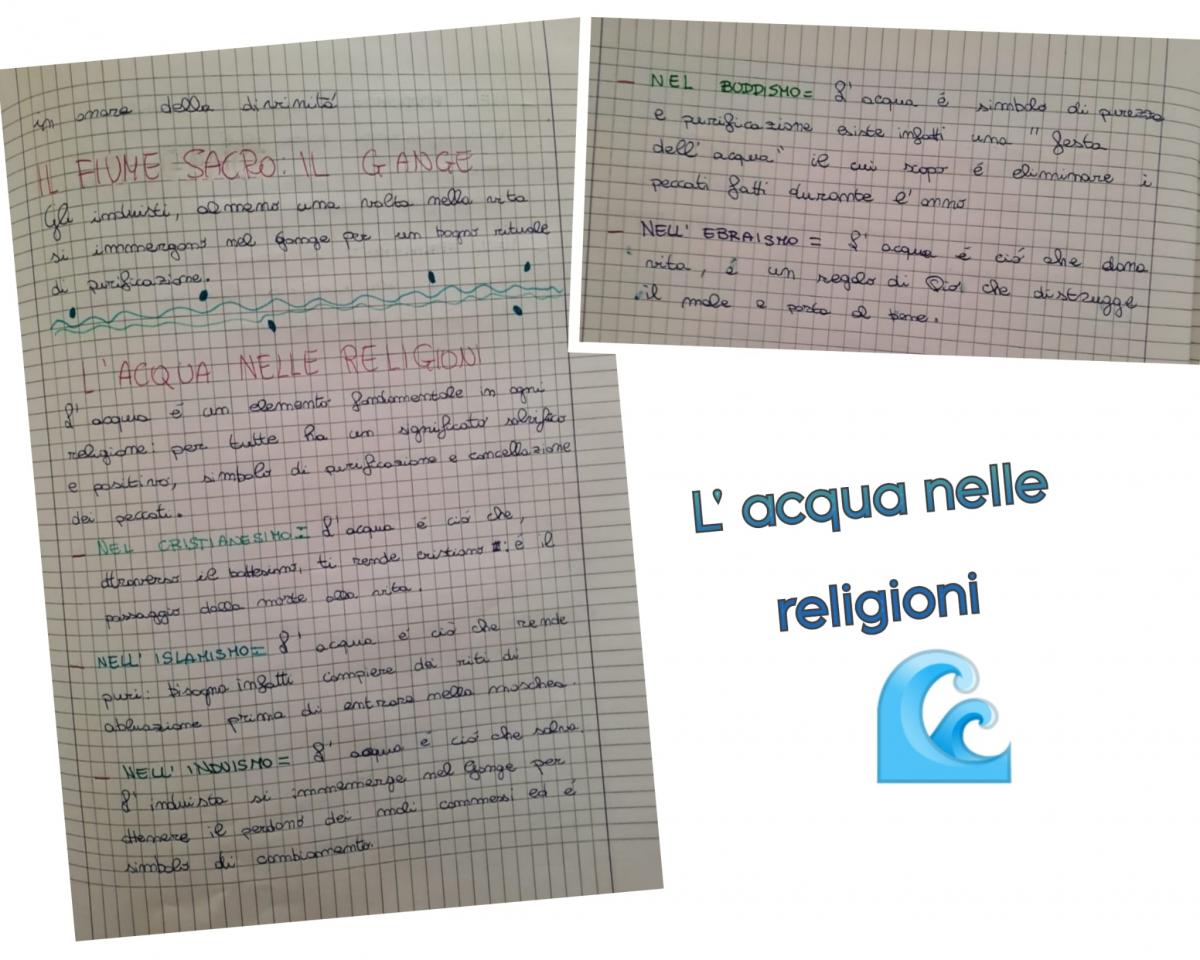 in onore della divinitá
IL FIUME SACRO: IL GANGE
Gli induisti, almeno una volta nella vita
si immergono nel Gange per un bagno rituale
di purificazione.
L'ACQUA NELLE RELIGIONI
L' acqua é un elemento fondamentale in ogni
religione: per tutte ha un significato salvifico
e positivo, simbolo di purificazione e cancellazione
dei peccati.
- NEL CRISTIANESIMO = L' acqua é ció che,
attraverso il battesimo, ti rende cristiano : é il
passaggio dalla morte alla vita.
- NELL' ISLAMISMO = L' acqua é ció che rende
puri: bisogna infatti compiere dei riti di
abluazione prima di entrare nella moschea.
- NELL' INDUISMO = L' acqua é ció che salva.
L' induista si immemerge nel Gange per
ottenere il perdono dei mali commessi ed é
simbolo di cambiamento.
- NEL BODDISMO = L' acqua é simbolo di purezza
e purificazione esiste infatti una " festa
dell' acqua" il cui scopo é eliminare i
peccati fatti durante l' anno
- NELL' EBRAISMO = L' acqua é ció che dona
vita, é un regalo di Dio che distrugge
il male e porta al bene.
L' acqua nelle
religioni